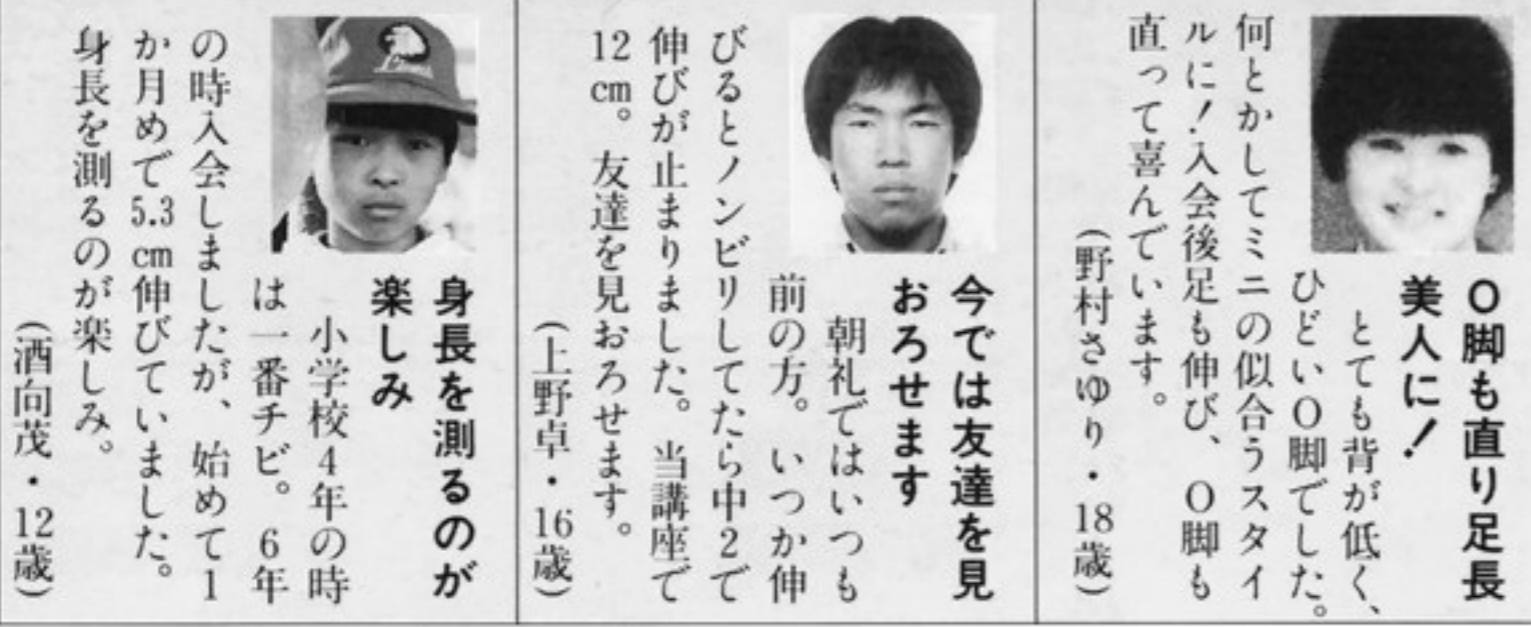 O脚も直り足長
美人に!
とても背が低く、
ひどいO脚でした。
何とかしてミニの似合うスタイ
ルに!入会後足も伸び、O脚も
直って喜んでいます。
(野村さゆり・18歳)
今では友達を見
おろせます
朝礼ではいつも
前の方。いつか伸
びるとノンビリしてたら中2で
伸びが止まりました。当講座で
12cm。友達を見おろせます。
(上野卓・16歳)
身長を測るのが
楽しみ
小学校4年の時
は一番チビ。6年
の時入会しましたが、始めて1
か月めで5.3cm伸びていました。
身長を測るのが楽しみ。
(酒向茂・12歳)